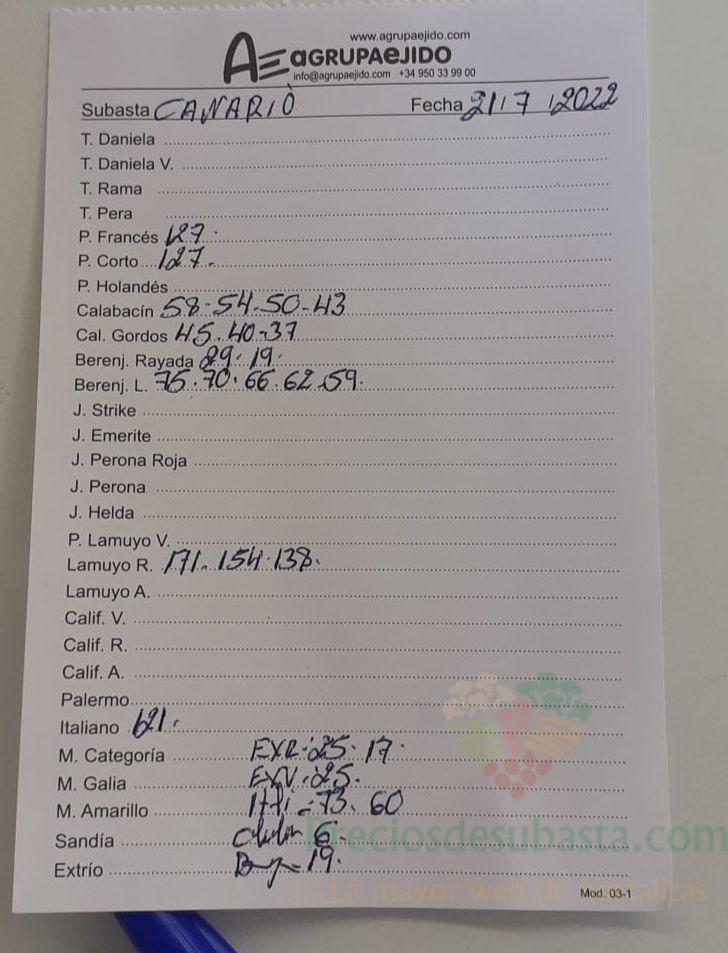 www.agrupaejido.com
AE aGRUPAeJIDO
info@agrupaejido.com +34 950 33 99 00
Subasta CANARIO Fecha 21/7/2022
T. Daniela
T. Daniela V.
T. Rama
T. Pera
P. Francés 127.
P. Corto 127.
P. Holandés
Calabacín 58-54-50-43
Cal. Gordos 45.40-37
Berenj. Rayada 29.19.
Berenj. L. 75.70.66.62.59.
J. Strike
J. Emerite
J. Perona Roja
J. Perona
J. Helda
P. Lamuyo V.
Lamuyo R. 171.154.138.
Lamuyo A.
Calif. V.
Calif. R.
Calif. A.
Palermo
Italiano 621.
M. Categoría EXR.25.17.
M. Galia EXV.25.
M. Amarillo 73.60
Sandía 6.
Extrío 19.
Preciosdesubasta.com
La mayor web de hortalizas
Mod. 03-1